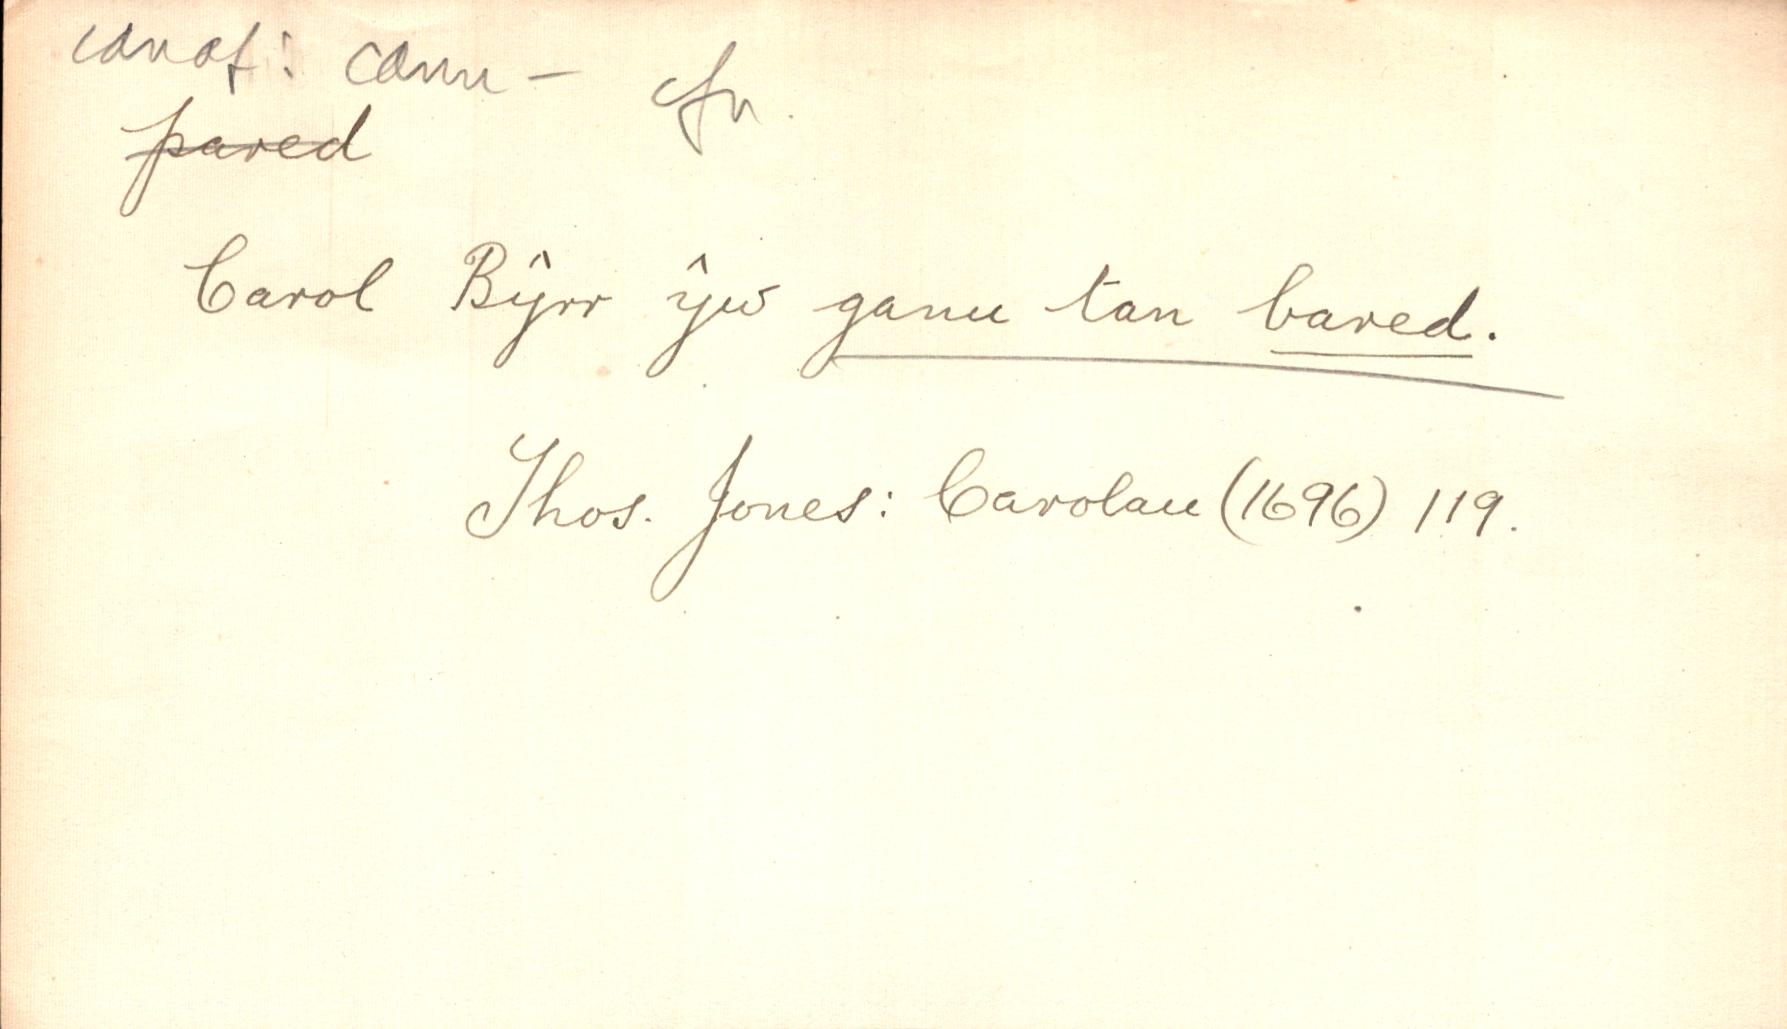 canaf: canu –
pared
Carol Bŷrr ŷw ganu tan bared.
Thos. Jones: Carolau (1696) 119.